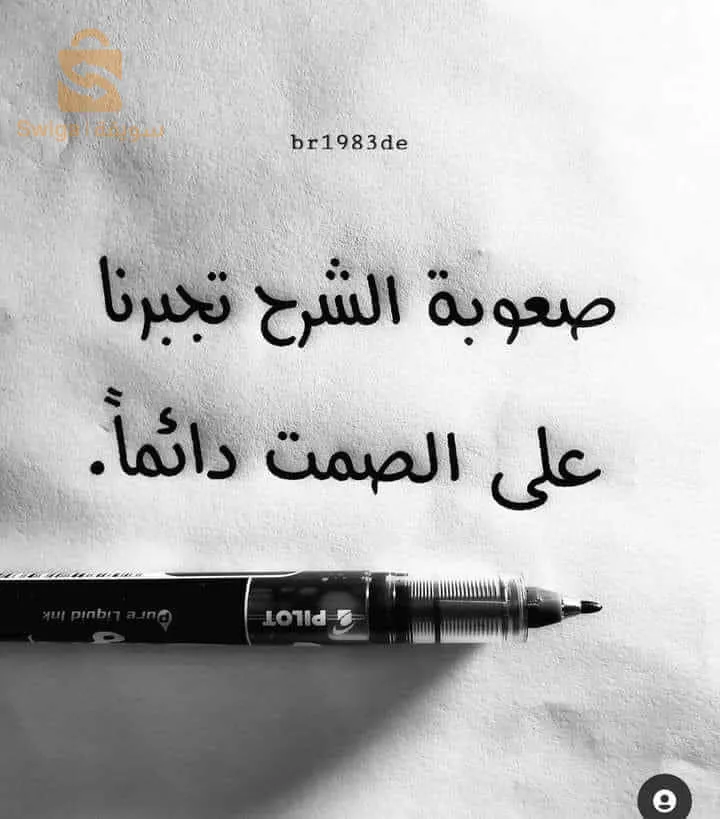 br1983de
صعوبة الشرح تجبرنا
على الصمت دائماً.
PILOT
Pure Liquid Ink